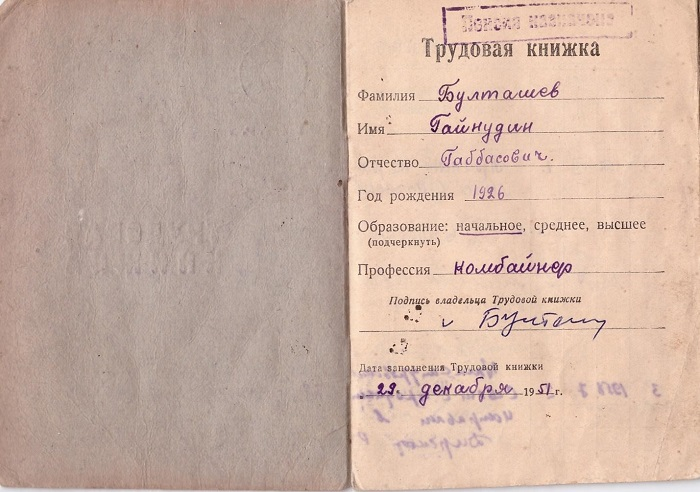 Пенсия назначена
Трудовая книжка
Фамилия Булташев
Имя Гайнудин
Отчество Габбасович.
Год рождения 1926
Образование: начальное, среднее, высшее
(подчеркнуть)
Профессия комбайнер
Подпись владельца Трудовой книжки
Дата заполнения Трудовой книжки
23. декабря 1951 г.